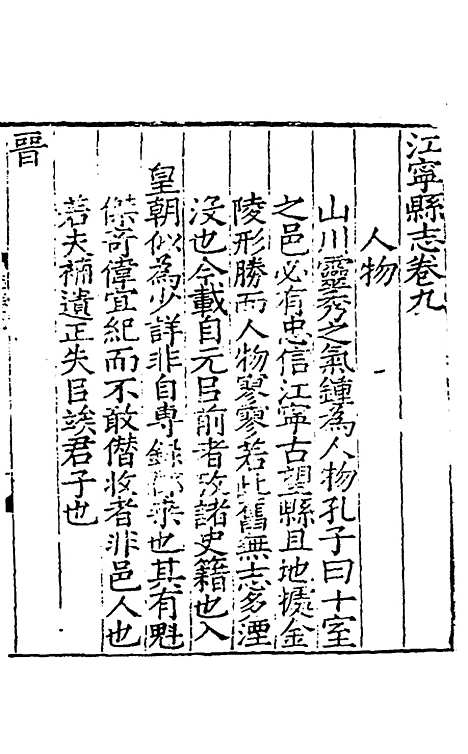 江寧縣志卷九
人物
山川靈秀之氣鍾為人物孔子曰十室
之邑必有忠信江寧古望縣且地據金
陵形勝而人物寥寥若此舊無志多湮
沒也今載自元㠯前者攷諸史籍也入
皇朝似為少詳非自専錄衆也其有魁
傑奇偉宜紀而不敢僭收者非邑人也
若夫補遺正失㠯竢君子也
晉